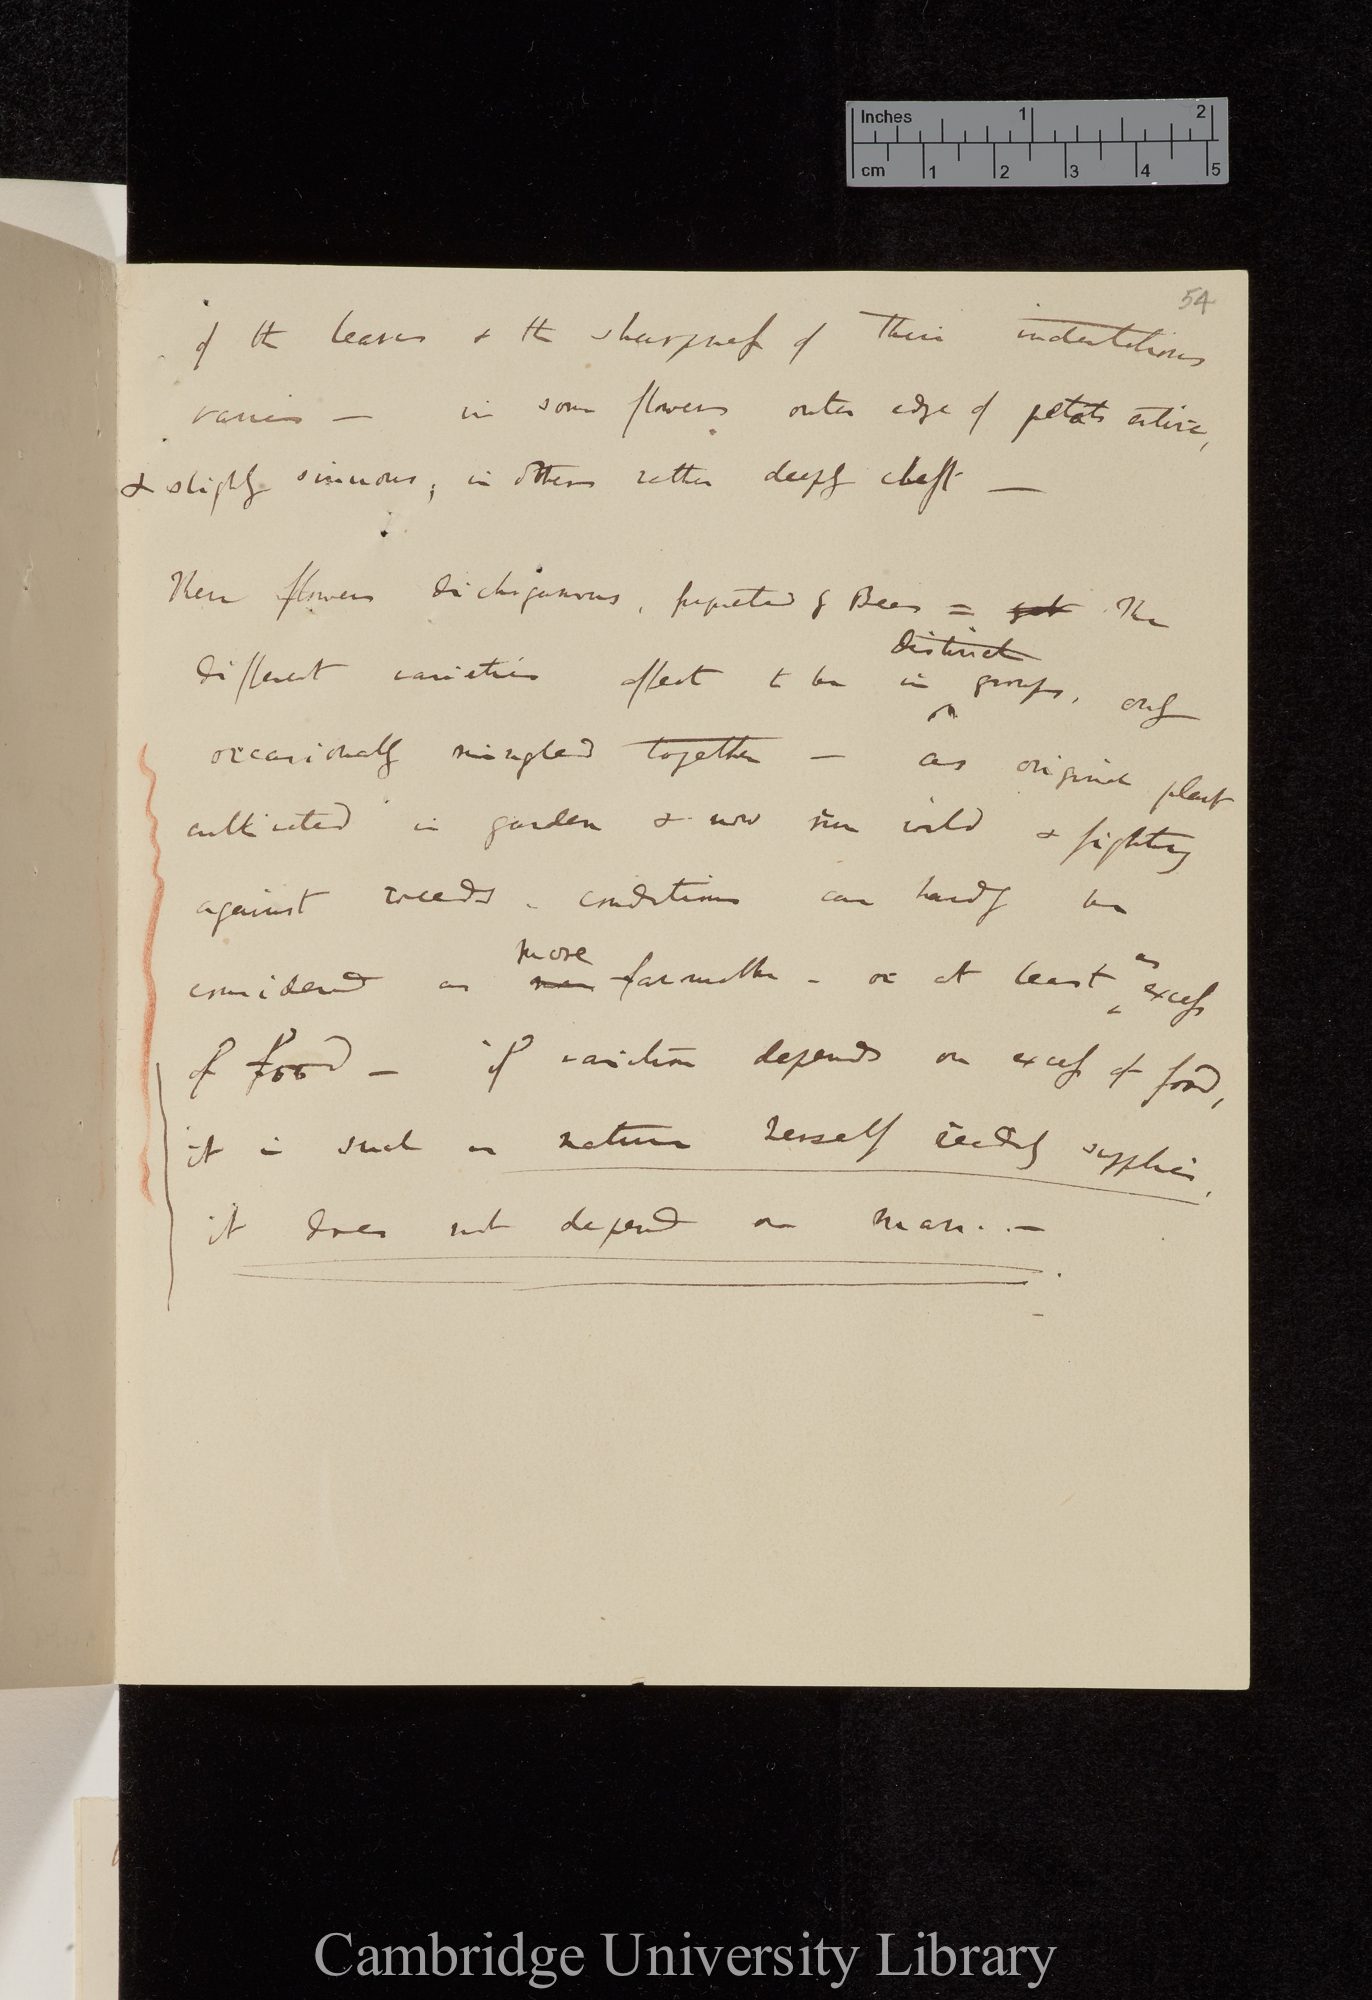 Inches 1 2
cm 1 2 3 4 5
54
of the leaves & the sharpness of their indentations
varies — in some flowers outer edge of petals entire,
& slightly sinuous; in others rather deeply cleft —
These flowers dichogamous, frequented by Bees = The
distinct
different varieties affect to be in groups, only
occasionally mingled together — as original plant
cultivated in garden & now run wild & fighting
against weeds. conditions can hardly be
more
considered as favourable - or at least as excess
of food — if variation depends on excess of food,
it is such as nature herself readily supplies,
it does not depend on man. —
Cambridge University Library